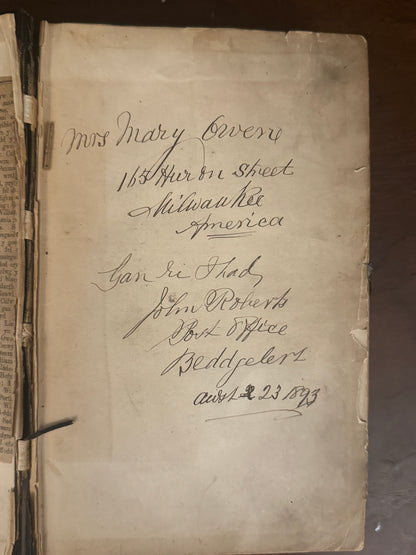 Mrs Mary Owene
165 Huron Street
Milwaukee
America
Gan ei Thad
John Roberts
Post Office
Beddgelert
23 1893